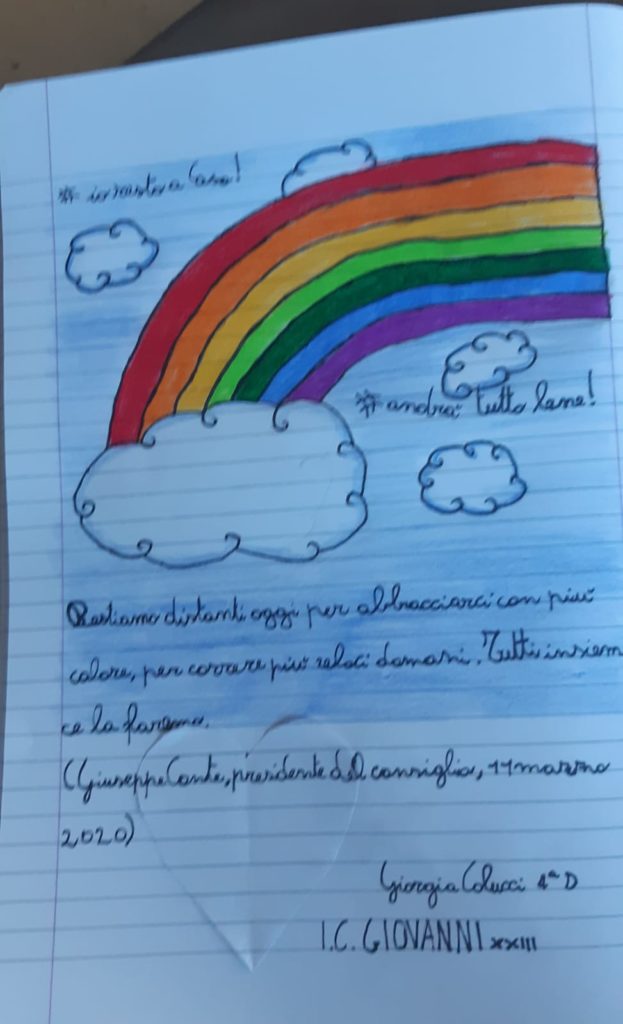 # iorestoa Casa!
# andrà tutto bene!
Restiamo distanti oggi per abbracciarci con più
calore, per correre più veloci domani. Tutti insiem
ce la faremo.
(Giuseppe Conte, presidente del consiglio, 11 marzo
2020)
Giorgia Colucci 4ª D
I.C. GIOVANNI XXIII